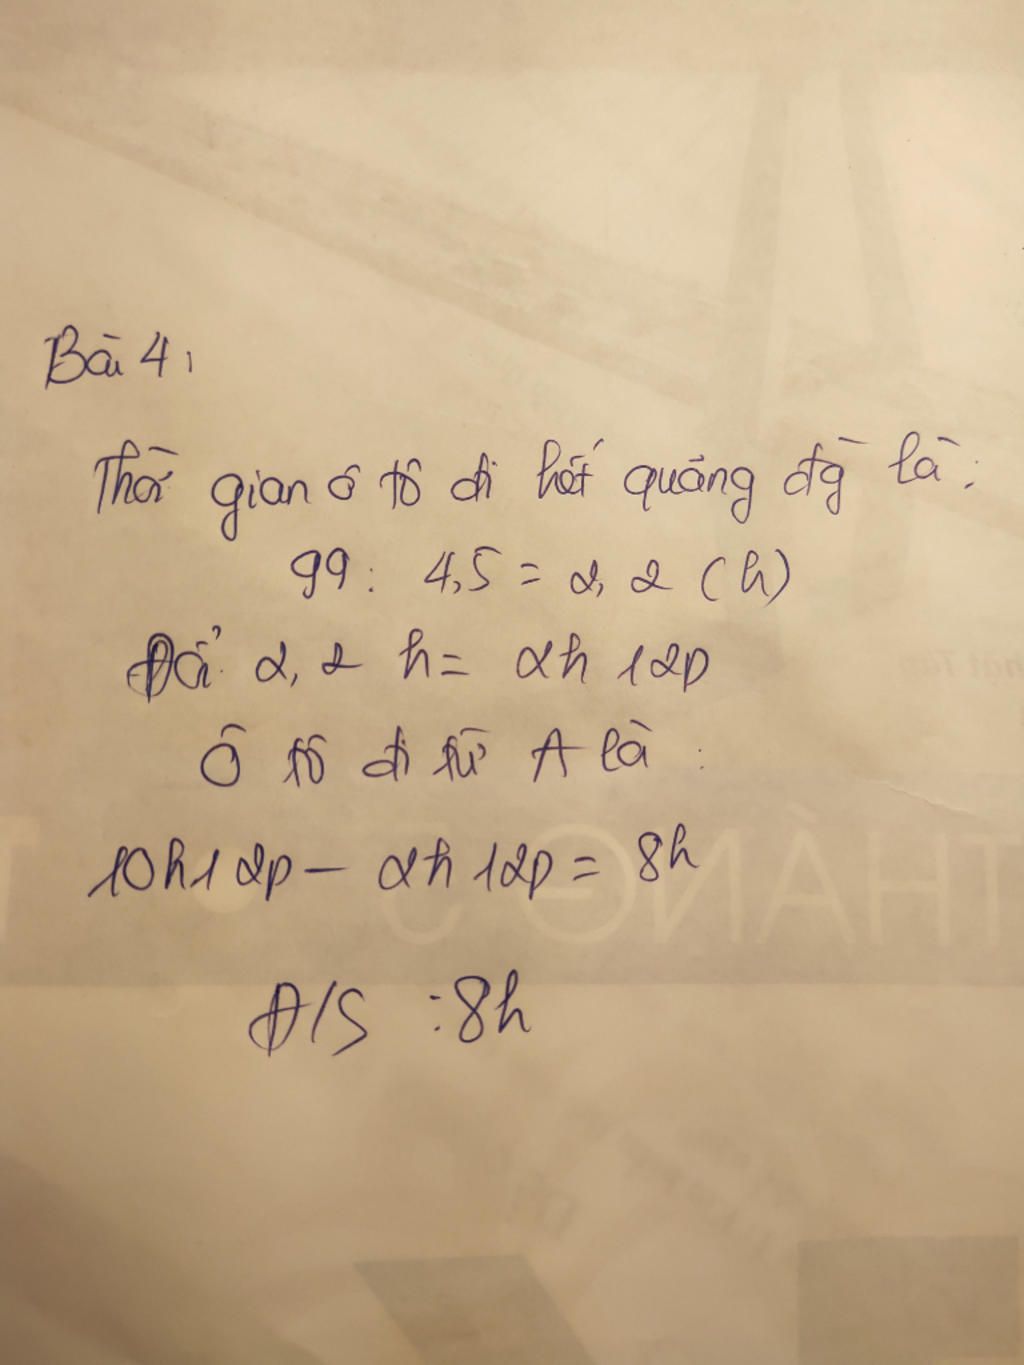 Bài 4:
Thời gian ô tô đi hết quãng đg là:
99: 4,5 = 2,2 (h)
Đổi 2,2 h = 2h 12p
Ô tô đi từ A là :
10h12p - 2h12p = 8h
Đ/S : 8h
THÁNG 5